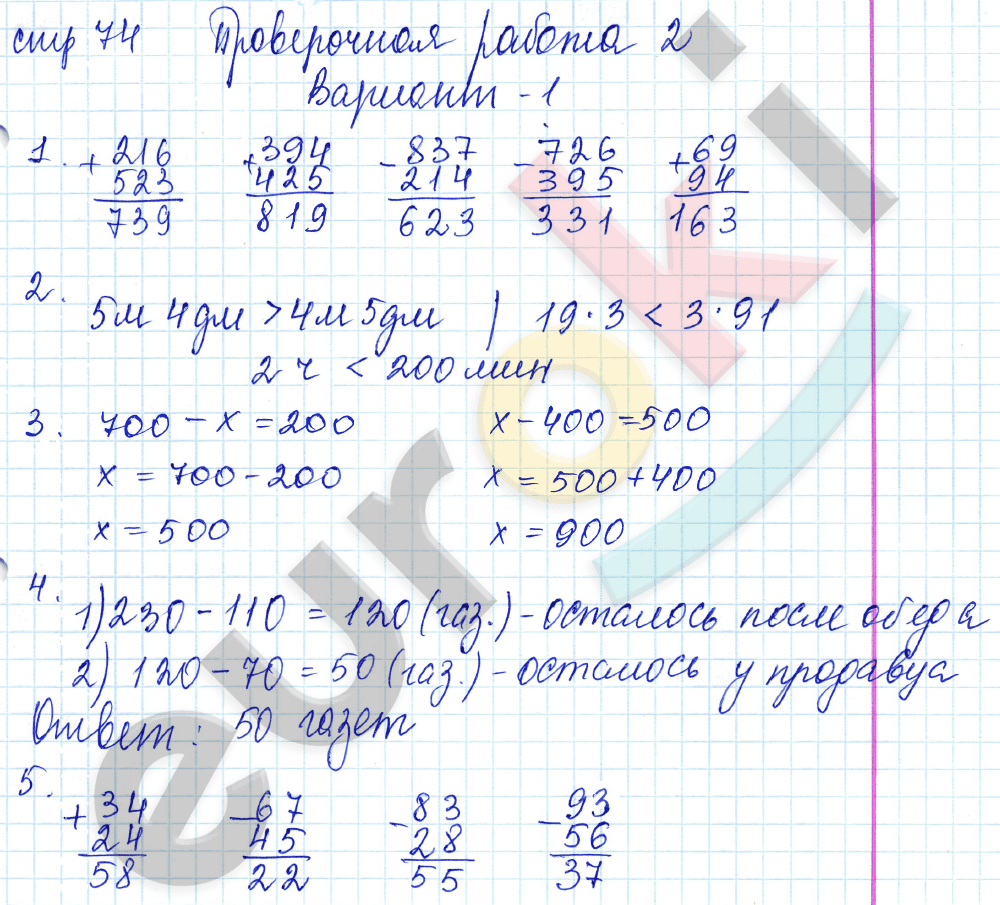 стр 74 Проверочная работа 2
Вариант - 1
1. +216 +394 -837 -726 +69
523 425 214 395 94
739 819 623 331 163
2.
5м 4дм > 4м 5дм | 19·3 < 3·91
2 ч < 200 мин
3. 700 - x = 200 x - 400 = 500
x = 700 - 200 x = 500 + 400
x = 500 x = 900
4.
1) 230 - 110 = 120 (газ.) - осталось после обеда
2) 120 - 70 = 50 (газ.) - осталось у продавца
Ответ: 50 газет
5.
+34 -67 -83 -93
24 45 28 56
58 22 55 37
euroki